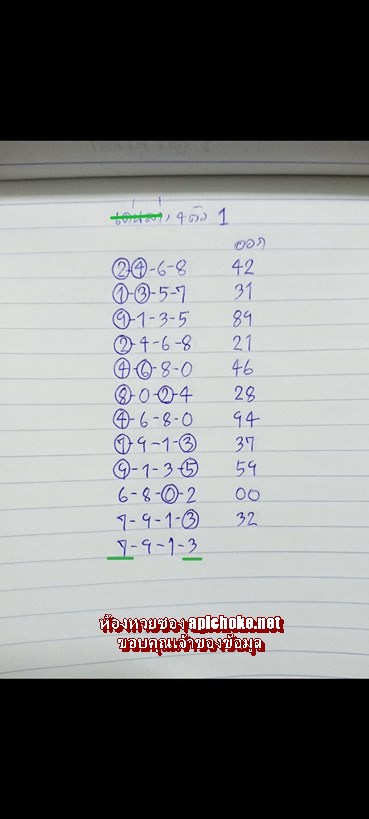 4 ตัว 1
ออก
2-4-6-8 42
1-3-5-7 31
9-1-3-5 89
2-4-6-8 21
4-6-8-0 46
8-0-2-4 28
4-6-8-0 94
7-9-1-3 37
9-1-3-5 59
6-8-0-2 00
7-9-1-3 32
7-9-1-3
ห้องหวยซอง apichoke.net
ขอบคุณเจ้าของข้อมูล